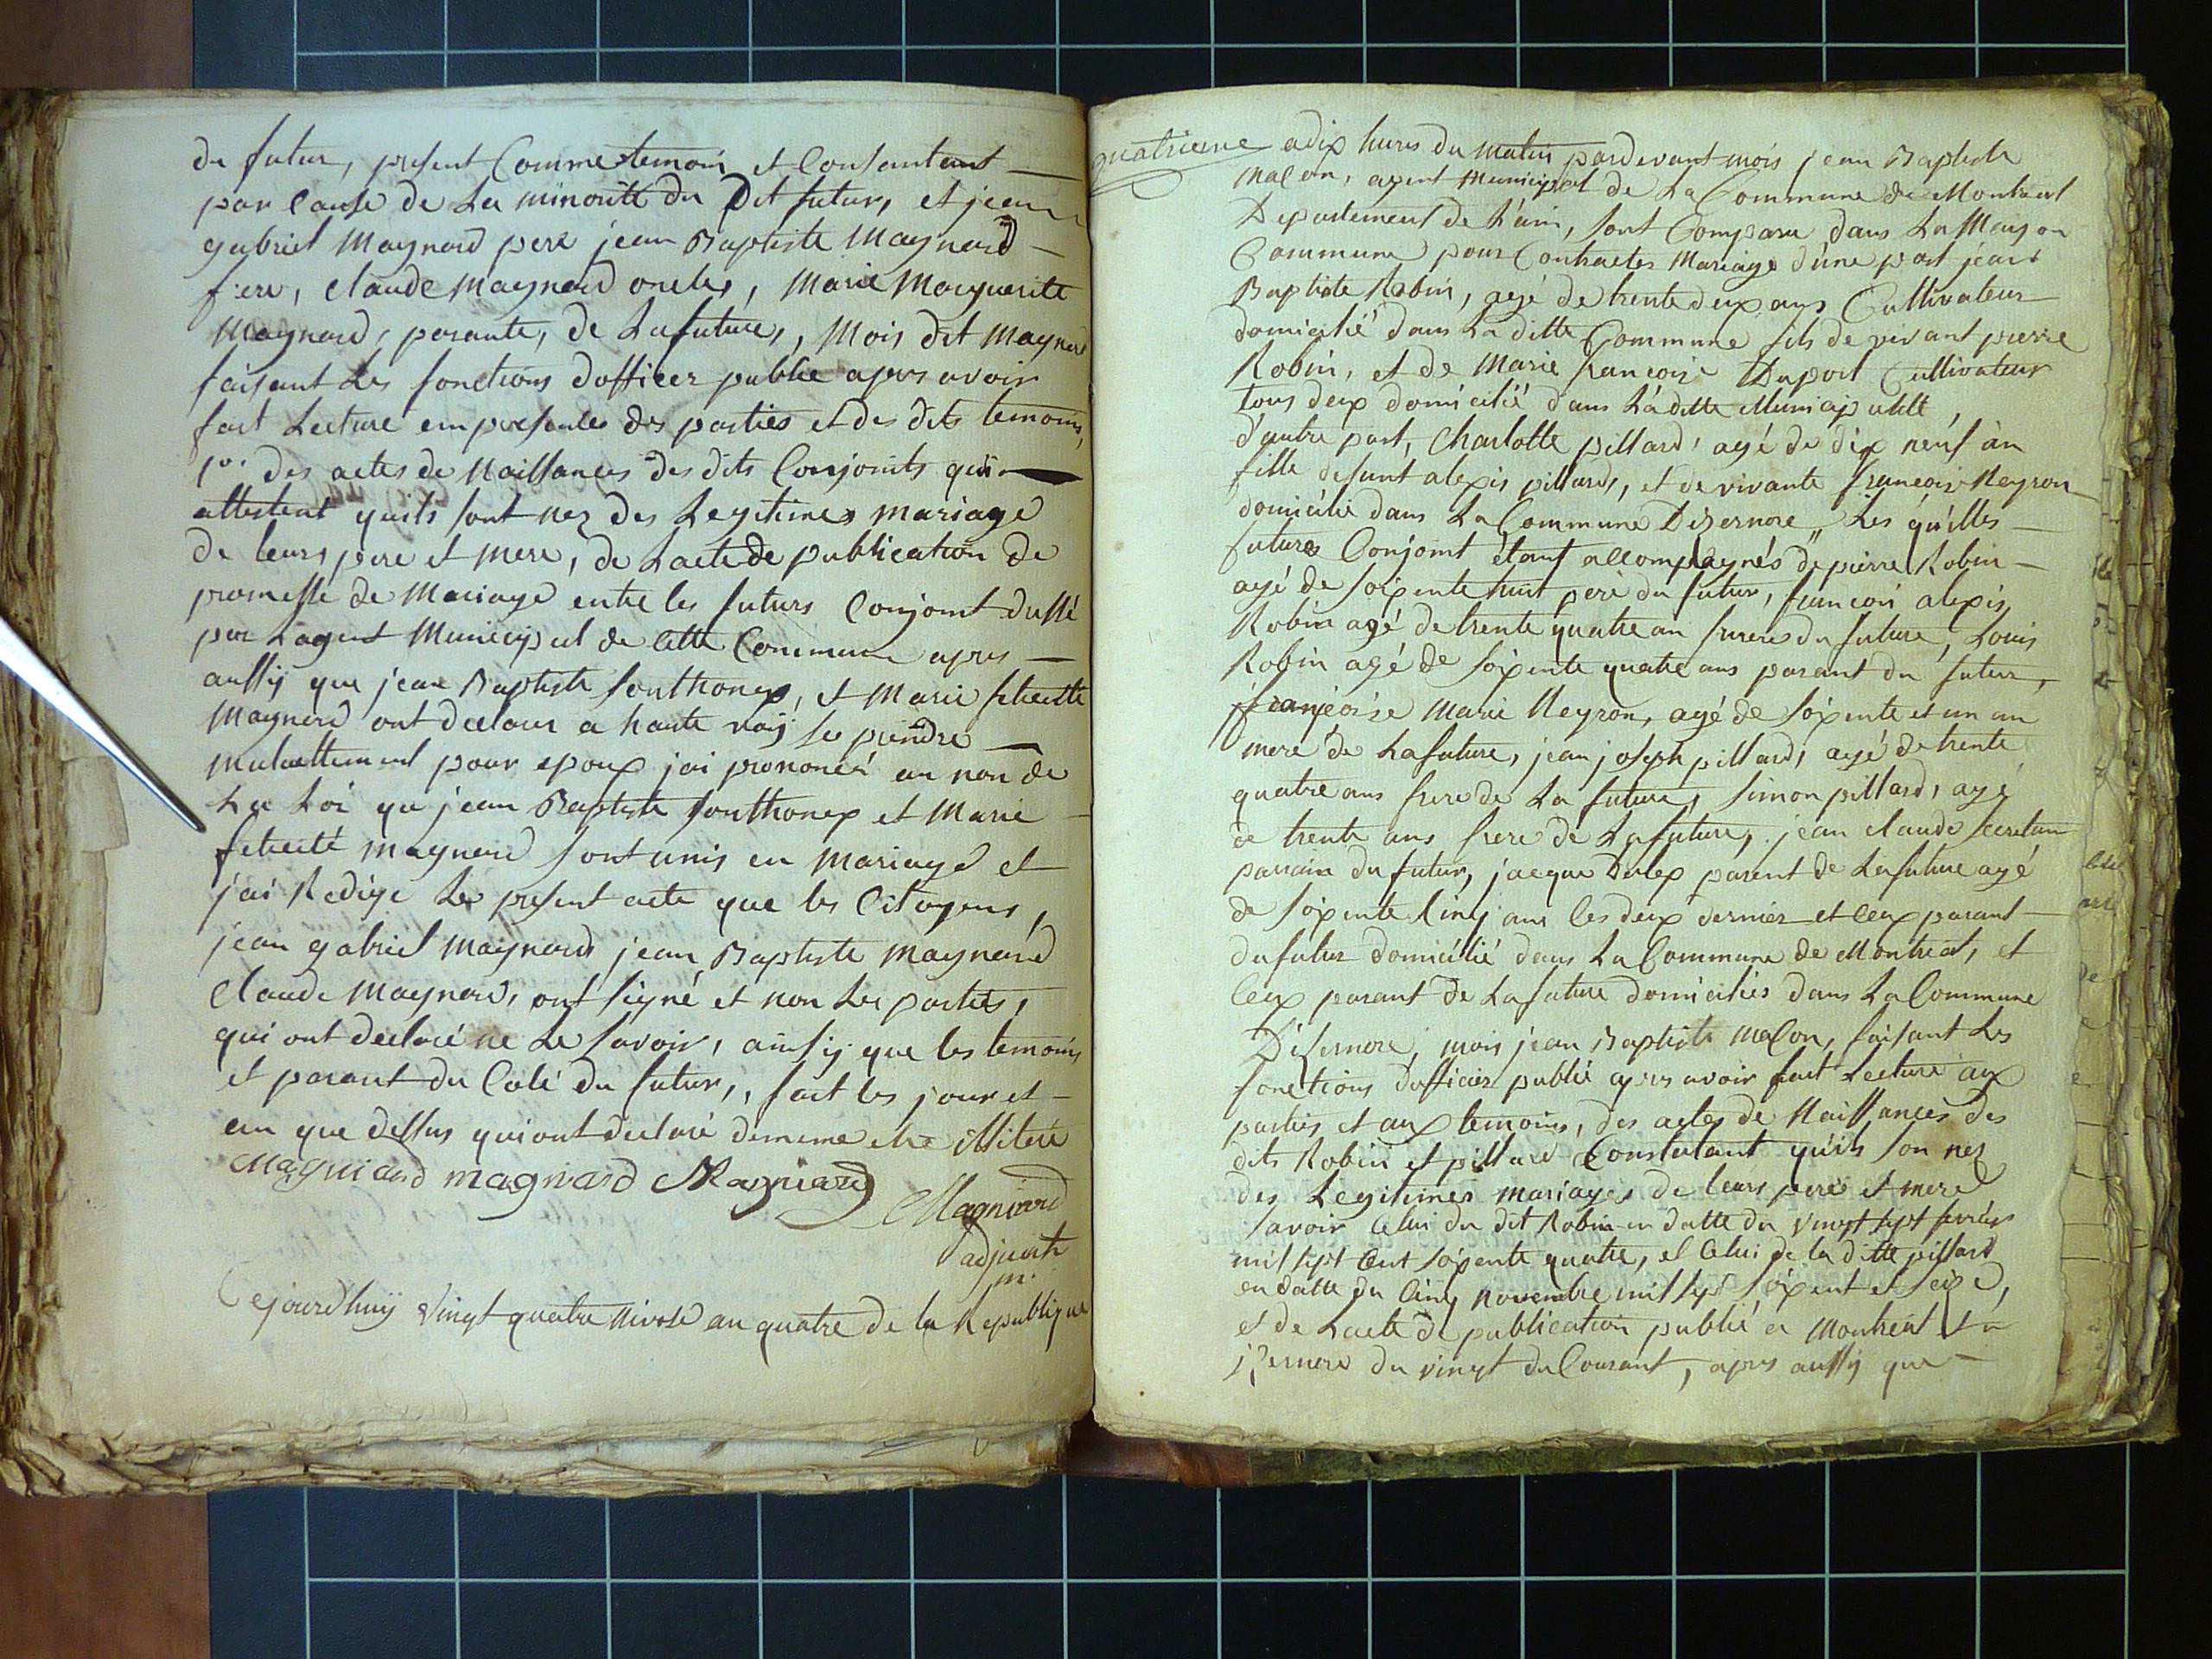 du futur, present Comme temoin et Consantant
par Cause de La minorité du Dit futur, et jean
gabriel Maynard pere jean Baptiste Maynard
frere, Claude Maynard oncles, Marie Marguerite
Maynard, parante, de La future, Mois dit Maynard
faisant Les fonctions dofficer public apres avoir
fait Lecture en presences des parties et des dits temoins,
1o. des actes de Naissances des dits Conjoints qui
attestent quils sont nez des Legitimes mariage
de leurs pere et mere, de Lacte de publication de
promesse de Mariage entre les futurs Conjoint dressé
par Lagent Municipal de Cette Commune apres
aussy que jean Baptiste Sonthonax, et Marie felicité
Maynard ont declarer a haute voix se prendre
mutuellement pour epoux jai prononcer au non de
La Loi que jean Baptiste Sonthonax et Marie
felicité Maynard sont unis en mariage et
j'ai Redige Le present acte que les Citoyens,
jean gabriel Maynard jean Baptiste Maynard
Claude Maynard, ont signé et non Les parties,
qui ont declaré ne Le savoir, ainsiy que les temoins
et parant du Coté du futur,, fait les jour et
an que dessus qui ont declaré dememe etre illiteré
Magniard magniard Magniard
Magniard
adjoint
m.
Cejourdhuiy vingt quatre Nivose an quatre de la Republique
quatrieme adix heures du matin pardevant mois jean Baptiste
Macon, agent Municipal de La Commune de Montreal
Departement de L'ain, sont Comparu dans La Maison
Commune pour Contracter Mariage d'une part jean
Baptiste Robin, agé de trente deux ans Cultivateur
domicilié dans La ditte Commune fils de vivant pierre
Robin, et de Marie francoise Duport Cultivateur
tous deux domicilié dans La ditte Municipalité,
d'autre part, Charlotte pillard, agé de dix neuf an
fille defunt alexis pillard, et de vivante francoise Neyron
domicilie dans La Commune Dizernore,, Les quelles
futures Conjoint étant accompagnés de pierre Robin
agé de soixente huit pere du futur, francois alexis
Robin agé de trente quatre an frerere du future, Louis
Robin agé de soixente quatre ans parant du futur,
françoise Marie Neyron, agé de soixente et un an
mere de La future, jean joseph pillard, agé de trente
quatre ans frere de La future, simon pillard, agé
de trente ans frere de La future, jean claude secretan
parrain du futur, jacque parent de La future agé
de soixente Cinq ans les deux dernier et Ceux parant
du futur domicilié dans La Commune de Montreal, et
Ceux parant de La future domiciliés dans La Commune
Disernore, mois jean Baptiste Macon, faisant Les
fonctions dofficier publié apres avoir fait Lecture aux
parties et aux temoins, des actes de Naissances des
dits Robin et pillard Constatant quils son nez
des Legitimes mariages de leurs pere et mere
savoir Celui du dit Robin en datte du vingt sept fevrier
mil sept Cent soixente quatre, et Celui de la ditte pillard
en datte du Cinq novembre mil sept soixent et seize,
et de Lacte de publication publié a Montreal et a
izernore du vingt du Courant, apres aussy que